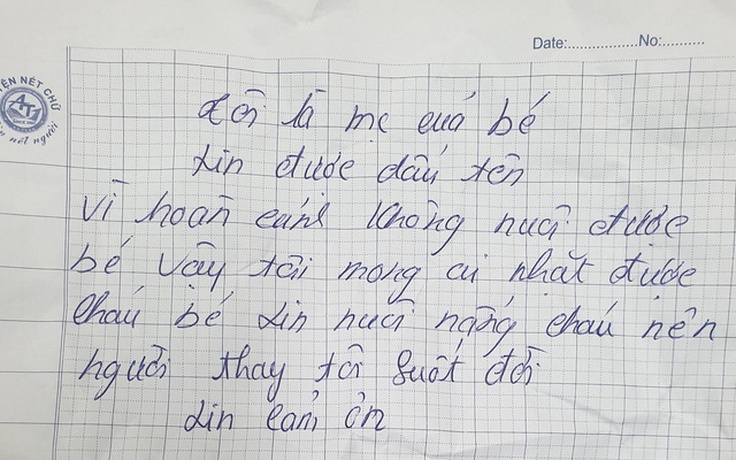 Date:..................No:...........
ỆN NÉT CHỮ
AT
nét người
tôi là mẹ cuả bé
xin được dấu tên
Vì hoàn cảnh không nuôi được
bé vậy tôi mong ai nhặt được
cháu bé xin nuôi nấng cháu nên
người thay tôi suốt đời
xin cảm ơn